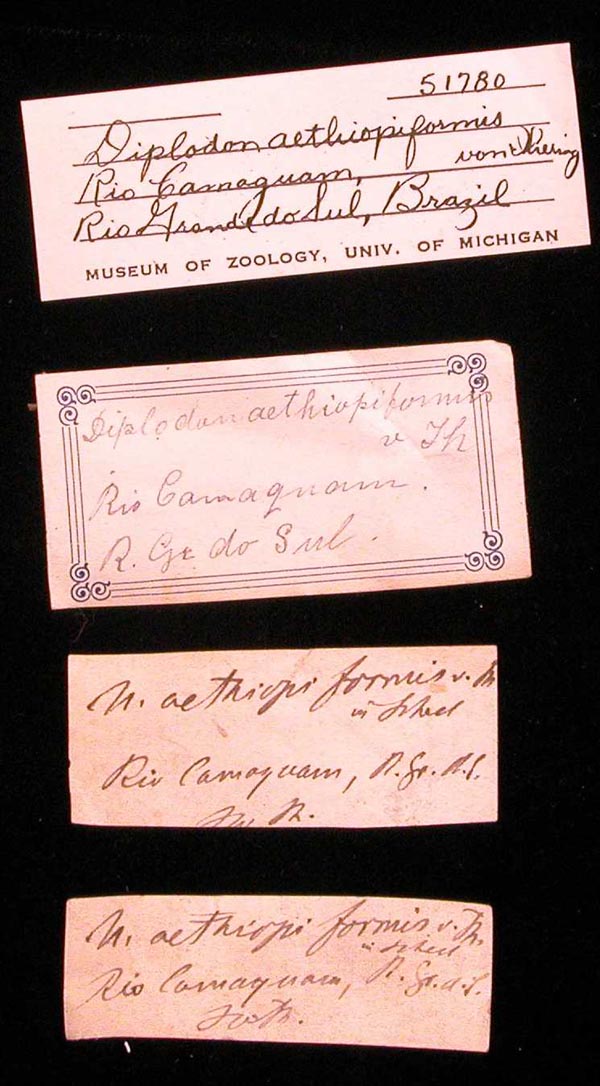 51780
Diplodon aethiopiformis
Rio Camaquam, von Ihering
Rio Grande do Sul, Brazil
MUSEUM OF ZOOLOGY, UNIV. OF MICHIGAN
Diplodon aethiopiformis
v Ih
Rio Camaquam.
R. Gr. do Sul.
U. aethiopiformis v. Ih
in sched
Rio Camaquam, R. Gr. d. S.
U. aethiopiformis v. Ih.
in sched
Rio Camaquam, R. Gr. d. S.